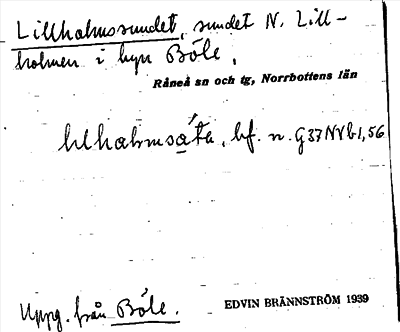 Lillholmssundet, sundet N. Lill-
holmen i byn Böle,
Råneå sn och tg, Norrbottens län
bf. n. G37NVb1,56
Uppg. från Böle.
EDVIN BRÄNNSTRÖM 1939